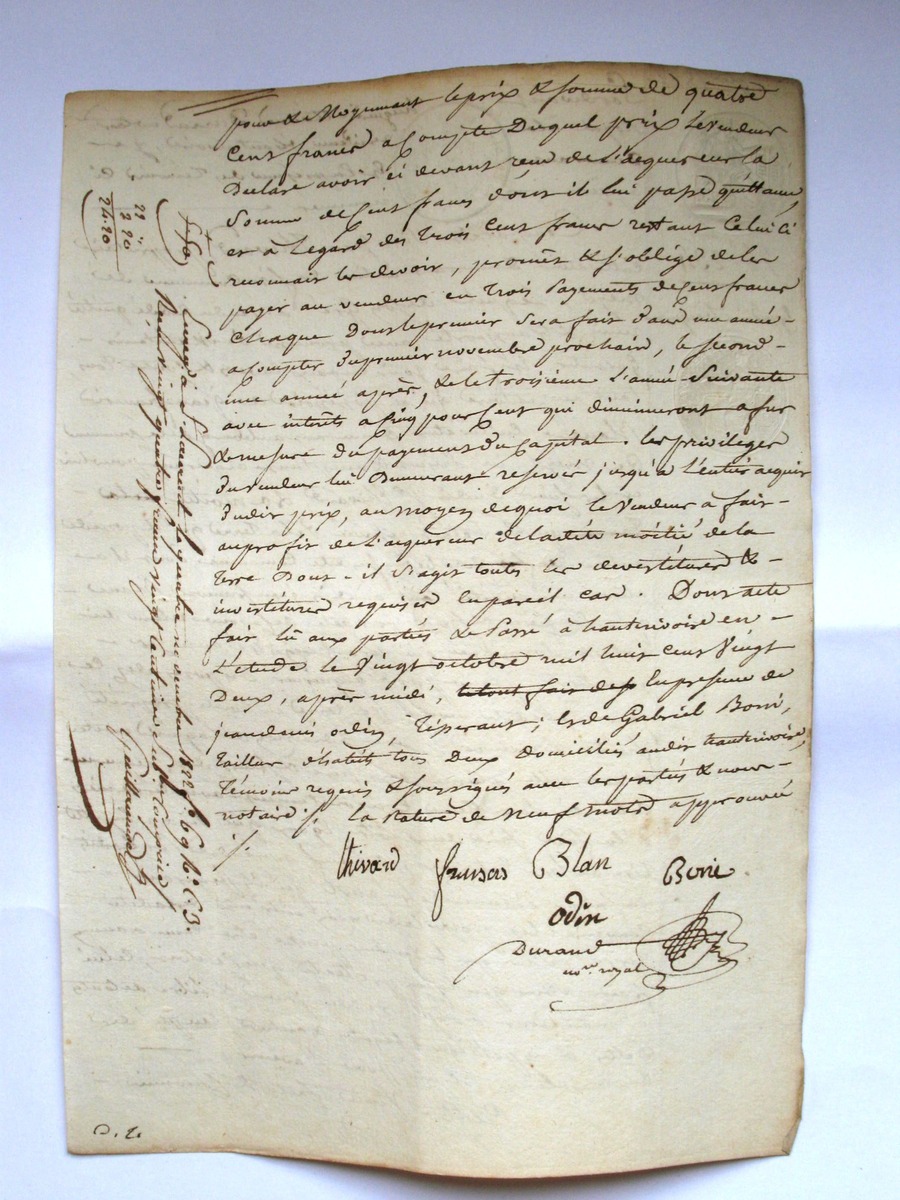 pour & moyennant le prix & somme de quatre
Cent francs a Compte Duquel prix le vendeur
Declare avoir ci devant reçu de l'acquereur la
Somme de Cent francs dont il lui passe quittance,
et à l'egard des Trois Cent francs restant Celui Ci
reconnait les devoir, promet & s'oblige de les
payer au vendeur en trois payements de Cent francs
Chaque Dont le premier sera fait dans une année -
a Compter du premier novembre prochain, le second -
une année après, & le troisième l'année suivante
avec interêts a Cinq pour Cent qui diminueront a fur
& mesure du payement du Capital. les privileges
du vendeur lui Demeurant reservés jusqu'a l'entier acquit
dudit prix, au moyen de quoi le vendeur à fait -
au profit de l'acquereur de la dite moitié de la
terre Dont - il s'agit toutes les devestitures & -
investitures requises en pareil cas. Dont acte
fait lu aux parties & passé à hauterivoire en -
l'etude le vingt octobre mil huit cent vingt
Deux, après midi, le tout fait de en presence de
jean denis odin, ; & de Gabriel Borie,
tailleur d'habits tous Deux domiciliés audit hauterivoire,
Témoins requis & soussignés avec les parties & nous -
notaire ∴ la rature de neuf mots approuvée
Thivard françois Blan Borie
odin
Durand
no.re royal
Enreg.é à St Laurent le quatre novembre 1822 f.o 69 R.o C. 3.
Reçu vingt quatre francs vingt Centimes
Guillaumond
22
2 20
24.20